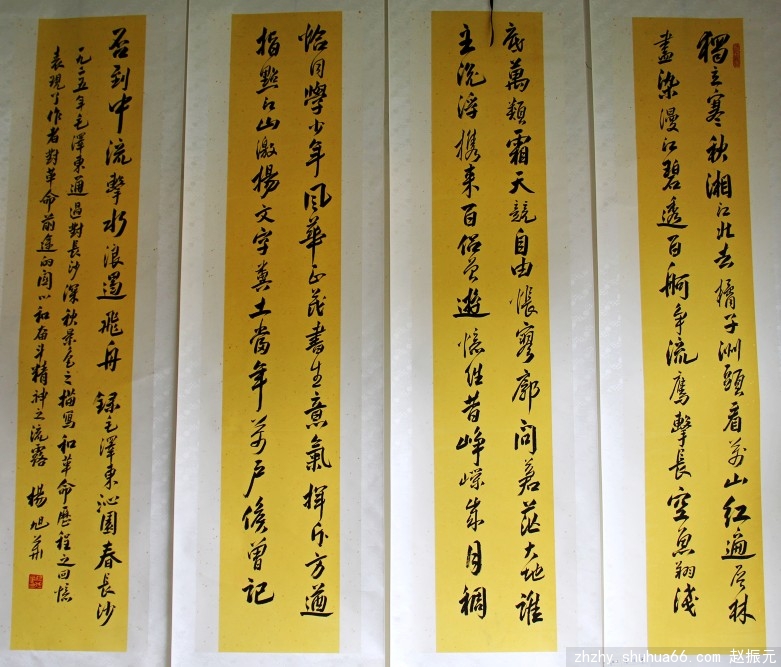 獨立寒秋湘江北去橘子洲頭看萬山紅遍层林
盡染漫江碧透百舸争流鷹擊長空魚翔淺
底萬類霜天競自由悵寥廓問蒼茫大地誰
主沉浮携來百侣曾遊憶往昔崢嶸歲月稠
恰同學少年風華正茂書生意氣揮斥方遒
指點江山激揚文字糞土當年萬户侯曾記
否到中流擊水浪遏飛舟 録毛澤東沁園春長沙
一九二五年毛澤東通過對長沙深秋景色之描寫和革命歷程之回憶
表現了作者對革命前途的關心和奋斗精神之流露 楊旭
zhzhy.shuhua66.com 赵振元